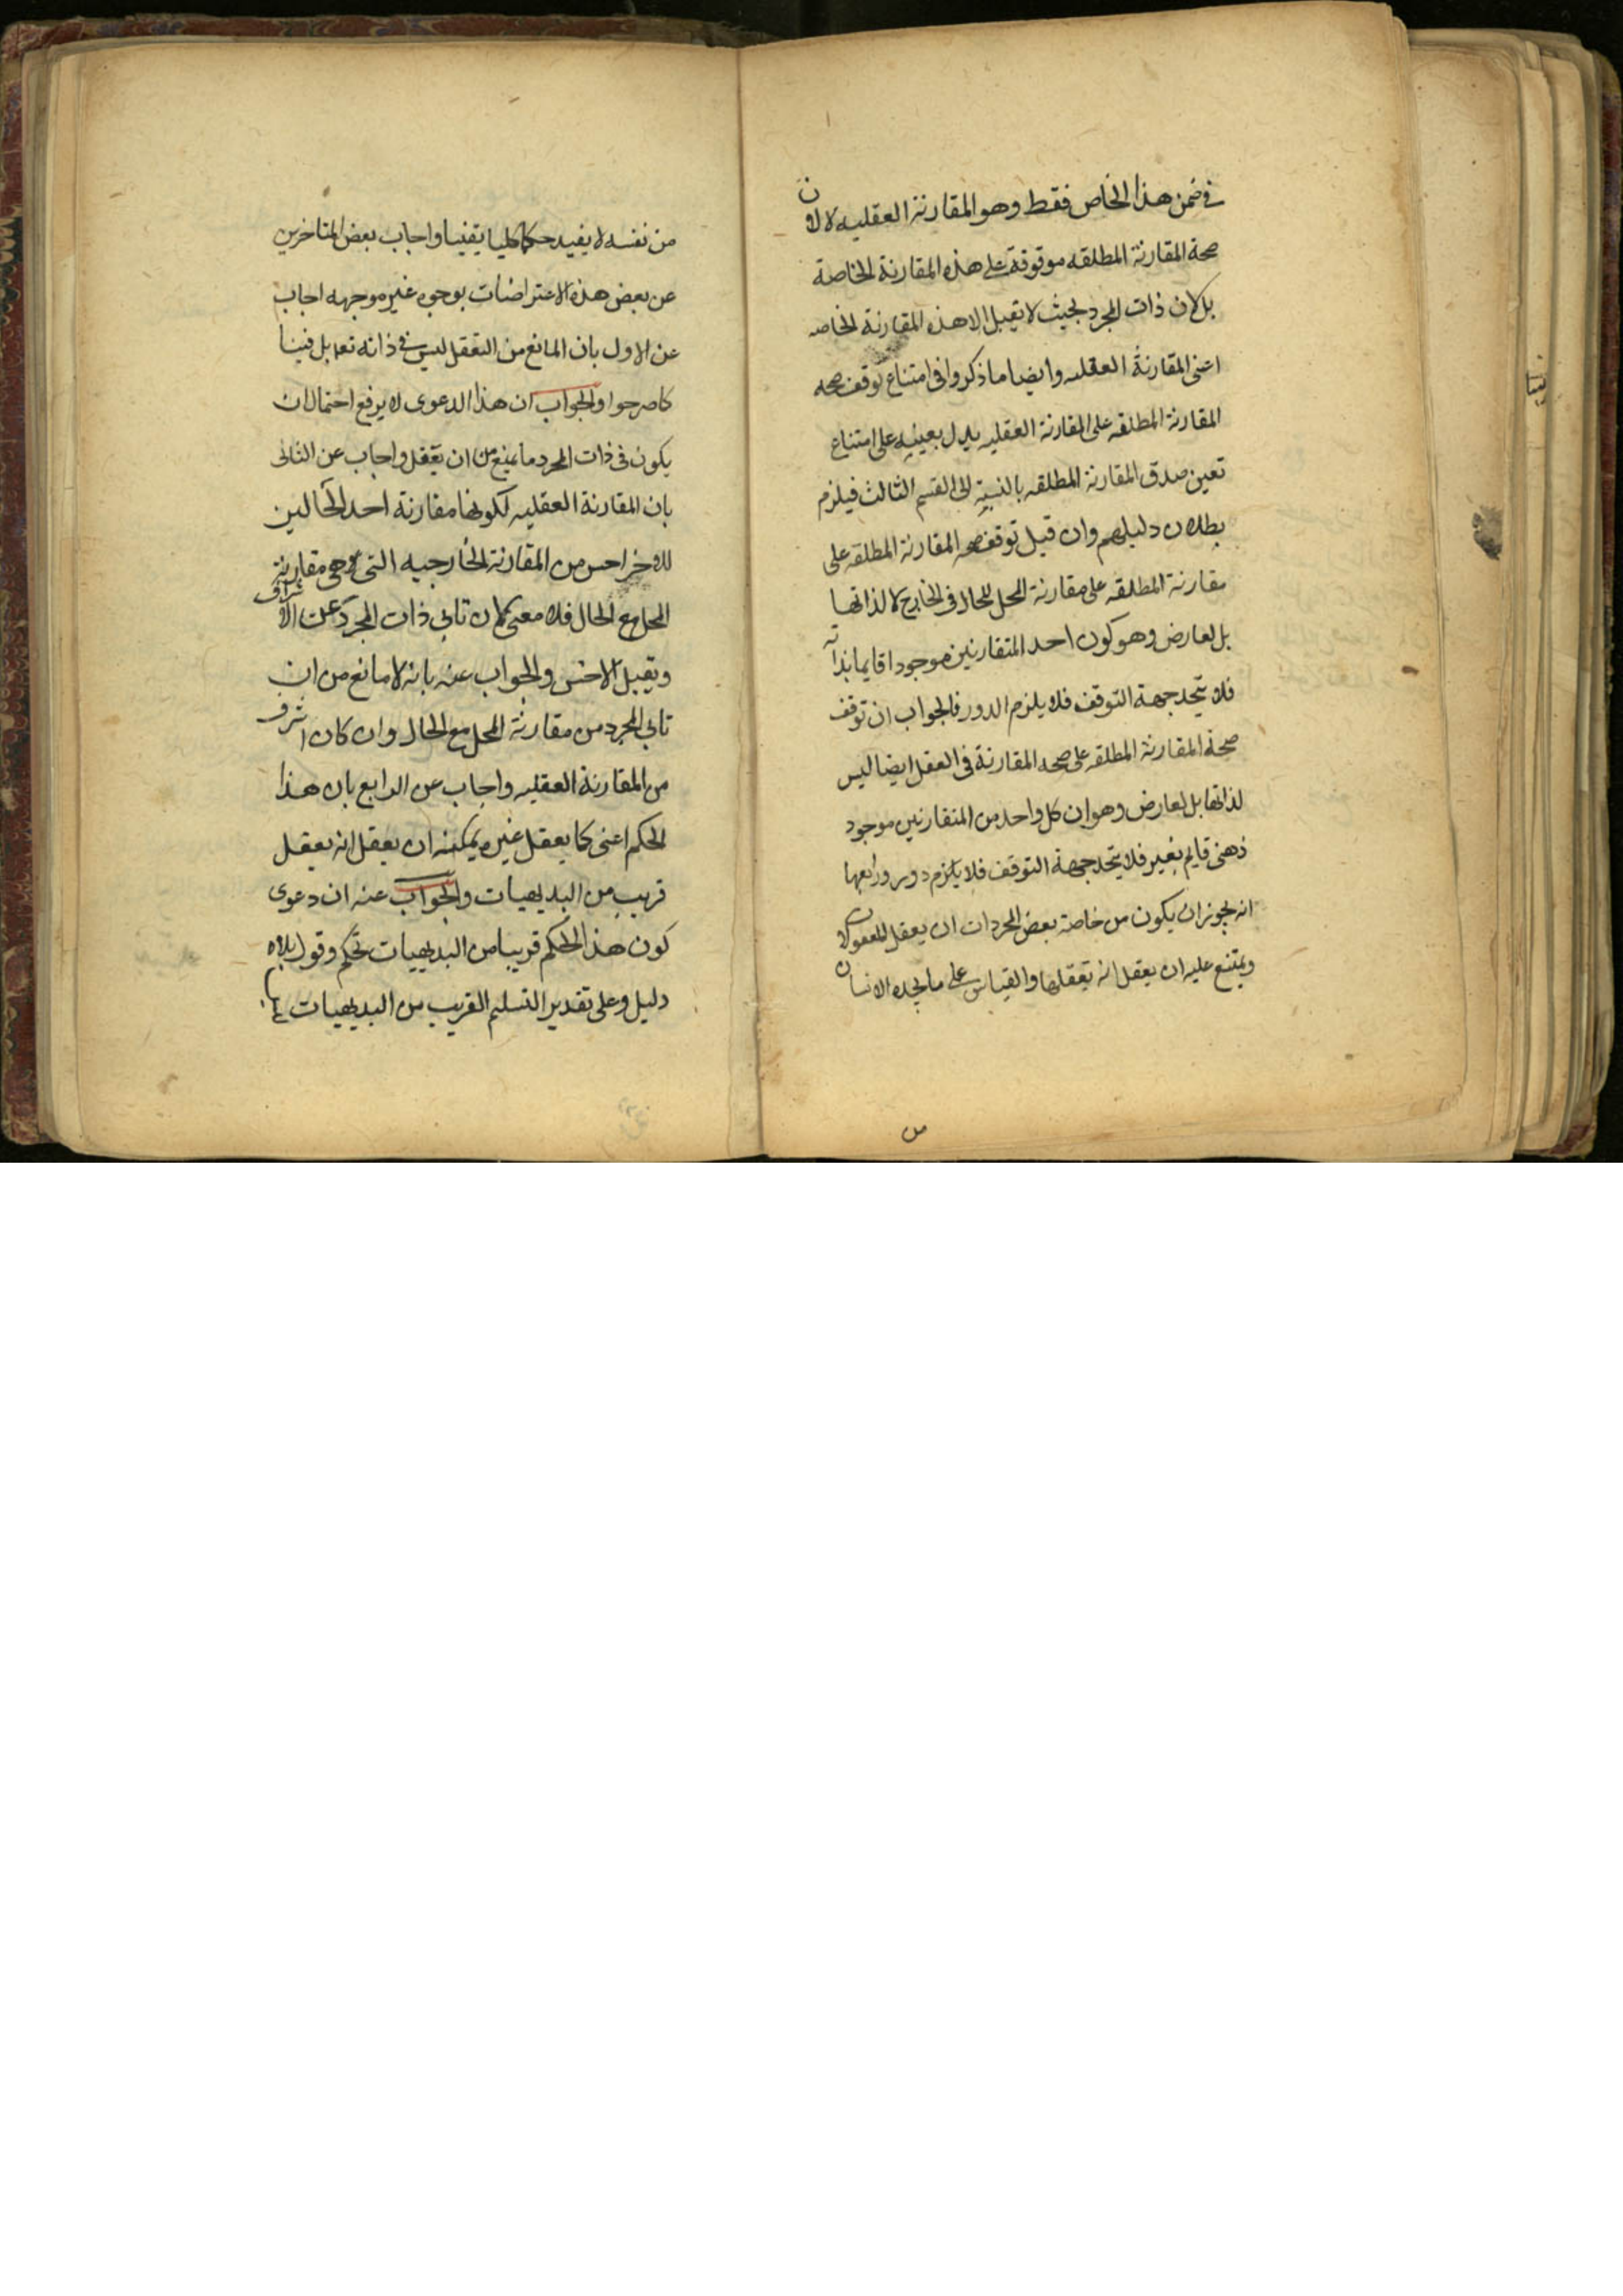 في ضمن هذا الخاص فقط وهو المقارنة العقليه لا لان
صحة المقارنة المطلقه موقوفة على هذه المقارنة الخاصة
بل لان ذات المجرد بحيث لا تقبل الا هذه المقارنة الخاصه
اعنى المقارنة العقليه وايضا ما ذكروا فى امتناع توقف صحه
المقارنة المطلقه على المقارنة العقليه يدل بعينه على امتناع
تعين صدق المقارنة المطلقه بالنسبة الى القسم الثالث فيلزم
بطلان دليلهم وان قيل توقف صحه المقارنة المطلقه على
مقارنة المطلقه على مقارنة المحل للحال فى الخارج لا لذاتها
بل لعارض وهو كون احد المتقارنين موجودا قايما بذاته
فلا يتحد جهة التوقف فلا يلزم الدور فالجواب ان توقف
صحة المقارنة المطلقه على صحه المقارنة فى العقل ايضا ليس
لذاتها بل لعارض وهو ان كل واحد من المتقارنين موجود
ذهنى قايم بغير فلا يتحد جهة التوقف فلا يلزم دور ورابعها
انه يجوز ان يكون من خاصة بعض المجردات ان يعقل المعقولات
ويمتنع عليه ان يعقل انه تعقلها والقياس على ما يجده الانسان
من
من نفسه لا يفيد حكما كليا يقينيا واجاب بعض المتاخرين
عن بعض هذه الاعتراضات بوجوه غير موجهه اجاب
عن الاول بان المانع من التعقل ليس فى ذاته تعا بل فينا
كما صرحوا والجواب ان هذا الدعوى لا يرفع احتمال ان
يكون فى ذات المجرد ما يمنع من ان يتعقل واجاب عن الثانى
بان المقارنة العقليه لكونها مقارنة احد الحالين
للاخر اخس من المقارنة الخارجيه التى هى مقارنة
المحل مع الحال فلا معنى لان تابى ذات المجرد عن الاشراف
ويقبل الاخس والجواب عنه بانه لا مانع من ان
تابى المجرد من مقارنة المحل مع الحال وان كان اشرف
من المقارنة العقليه واجاب عن الرابع بان هذا
الحكم اعنى كل ما يعقل غيره يمكنه ان يعقل انه يعقل
قريب من البديهيات والجواب عنه ان دعوى
كون هذا الحكم قريبا من البديهيات تحكم وقول بلا
دليل وعلى تقدير التسليم القريب من البديهيات